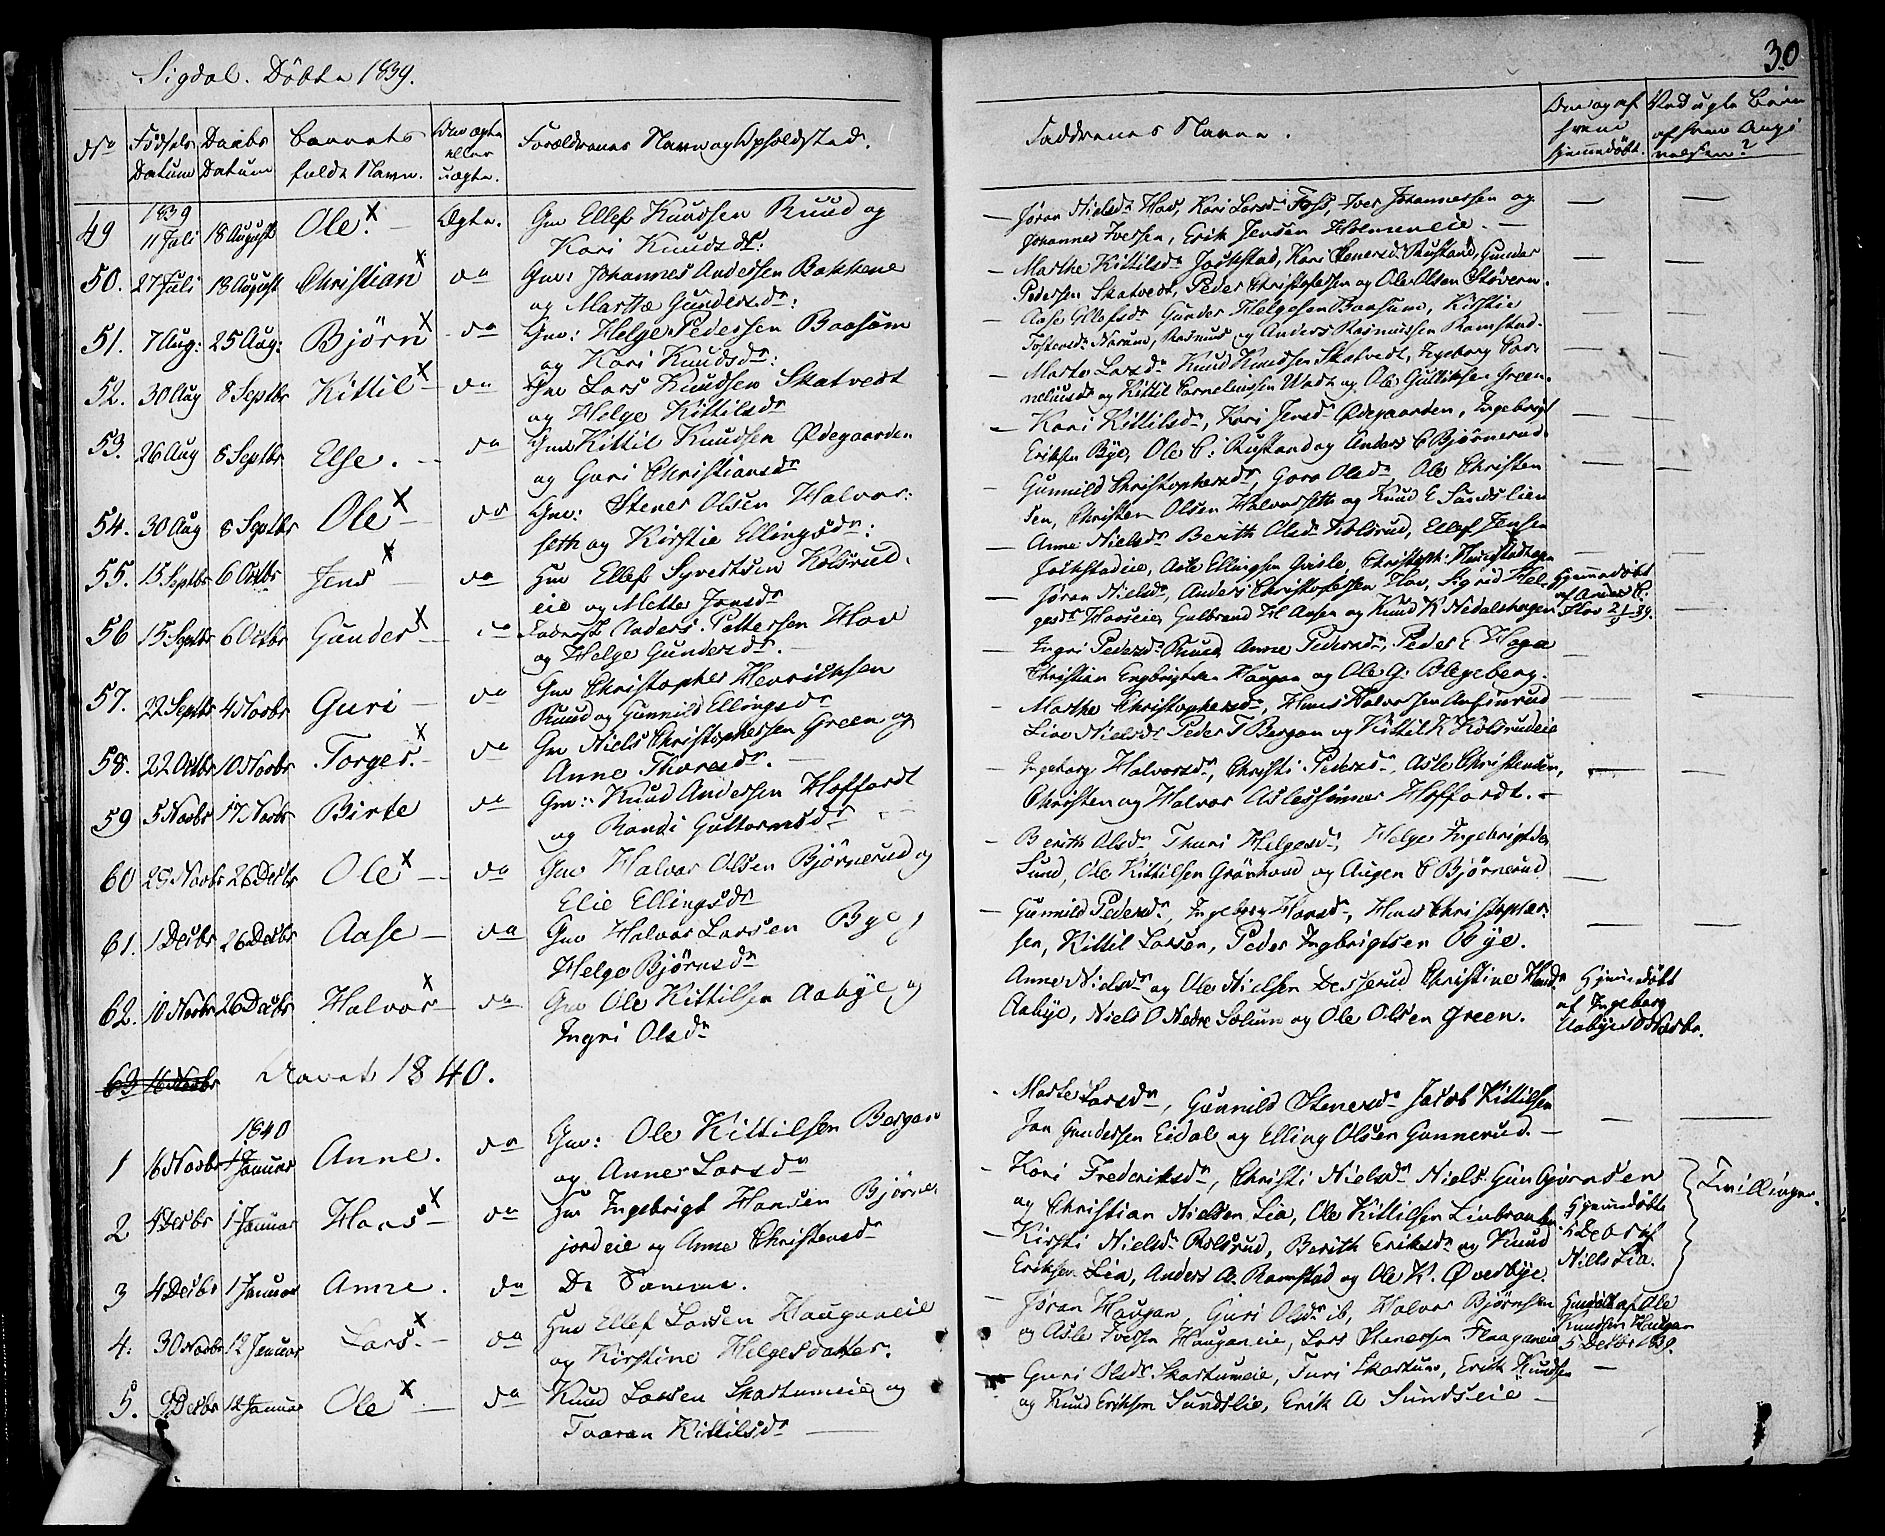 Sigdal. Döbte 1839.
30
No
Födsels Datum
Daabs Datum
Barnets fulde Navn.
Om ægte eller uægte.
Forældrenes Navn og Opholdsted.
Faddernes Navne.
Om og af hvem hjemmedöbt.
Ved uægte Börn af hvem Angivelsen?
49 1839 11 Juli 18 August Ole X Ægte. Gm Ellef Knudsen Ruud og
Kari Knudsdr:
Jøran Nielsdr Hov, Kari Larsdr Foss, Iver Johannessen og
Johannes Iversen, Erik Jensen Holmeneie.
50. 27 Juli 18 August Christian X do Gm: Johannes Andersen Bakkene
og Marthe Gundersdr:
Marthe Kittilsdr Jokstad, Kari Stenersdr Skustad, Gunder
Pedersen Skatvedt, Peder Christofersen og Ole Olsen Støveren.
51. 7 Aug: 25 Aug: Bjørn X do Gm: Helge Pedersen Baasum
og Kari Knudsdr:
Aase Ellefsdr Gunder Helgesen Baasum, Kirstie
Narum, Rasmus og Anders Rasmussen Ramstad.
52. 30 Aug 8 Septbr Kittil X do Gm Lars Knudsen Skatvedt
og Helge Kittilsdr
Marte Larsdr Knud Knudsen Skatvedt, Ingeborg Cor-
neliusdr og Kittil Corneliussen og Ole Gulliksen Green.
53. 26 Aug 8 Septbr Else. do Gm Kittil Knudsen Ødegaarden
og Guri Christiansdr
Kari Kittilsdr, Kari Jensdr Ødegaarden, Ingebrigt
Eriksen Bye, Ole C: Rustand og Anders C Bjørnerud.
54. 30 Aug 8 Septbr Ole X do Gm: Stener Olsen Halvor:
seth og Kirstie Ellingsdr:
Gunnild Christophersdr, Goro Olsdr, Ole Christen
sen, Christen Olsen Halvorseth og Knud E Sundslien
55. 15 Septbr 6 Octbr Jens X do Hm Ellef Syvertsen Kolsrud-
eie og Mette Jonsdr
Anne Nielsdr Berith Olsdr Kolsrud, Ellef Jensen
Jokstadeie, Asle Ellingsen Christoph:
56 15 Septbr 6 Octbr Gunder X do Anders Pettersen Hov
og Helge Gundersdr.
Jøran Nielsdr, Anders Christofersen Hov, Sigrid Hel-
gesdr Gulbrand H Aasen og Knud K Nedalshagen
Hjemmedöbt af Anders C. Hov 21/9 39.
57. 22 Septbr 4 Novbr Guri do Gm Christopher Henrichsen
Ruud og Gunnild Ellingsdr
Ingri Pedersdr Ruud, Anne Pedersdr, Peder E Haga
Christian Engbrigtsen Haugan og Ole G: Blegeberg.
58. 22 Octbr 10 Novbr Torger. X do Gm Niels Christophersen Green og
Anne Thoresdr.
Marthe Christophersdr, Hans Halvorsen
Live Nielsdr Peder T Bergan og Kittil K Kolsrudeie
59 5 Novbr 17 Novbr Birte do Gm: Knud Andersen Hoffardt
og Randi Guttormsdr
Ingeborg Halvorsdr, Christi Pedersdr, Asle Christensen,
Christen og Halvor Aslessønner Hoffardt.
60 29 Novbr 26 Decbr Ole X do Gm Halvor Olsen Bjørnerud og
Elie Ellingsdr
Berith Olsdr Thuri Helgesdr, Helge Ingebrigtsen
Sund, Ole Kittilsen Grønhovd og Augen C Bjørnerud
61. 1 Decbr 26 Decbr Aase do Gm Halvor Larsen Bye og
Helge Bjørnsdr
Gunnild Pedersdr, Ingeborg Hansdr, Hans Christopher-
sen, Kittil Larsen, Peder Ingbrigtsen Bye.
62. 10 Novbr 26 Decbr Halvor X do Gm Ole Kittilsen Aabye og
Ingri Olsdr
Anne Nielsdr og Ole Nielsen Desserud Christine
Aabye, Niels O Nedre Solum og Ole Olsen Green.
Hjemmedöbt af Ingeborg Aabye Novbr.
63 16 Novbr Aaret 1840.
1840
1 16 Novbr 1 Januar Anne. do Gm: Ole Kittilsen Bergan
og Anne Larsdr
Marte Larsdr, Gunnild Stenersdr Jacob Kittilsen
Jan Gundersen Eidal og Elling Olsen Gunnerud.
2 4 Decbr 1 Januar Hans X do Hm Ingebrigt Hansen Bjørne
jordeie og Anne Christensdr
Kari Frederiksdr, Christi Nielsdr Niels Gungjørnsen
og Christian Nielsen Lia, Ole Kittilsen
Hjemmedöbte 5 Decbr af Niels Lia.
Tvillinger.
3 4 Decbr 1 Januar Anne. do De Samme.
Kirsti Nielsdr Kolsrud, Berith Eriksdr og Knud
Eriksen Lia, Anders A. Ramstad og Ole K. Øverbye.
4. 30 Novbr 12 Januar Lars X do Hm Ellef Larsen Hauganeie
og Kirstine Helgesdatter.
Jøran Haugan, Guri Olsdr ib, Halvor Bjørnsen
og Asle Iversen Hauganeie, Lars Stenersen Flaaganeie
Hmdöbt af Ole Knudsen Haugan 5 Decbr 1839.
5. 9 Decbr 12 Januar Ole X do Knud Larsen Skartumeie og
Taaran Kittilsdr
Guri Olsdr Skartumeie, Turi Skartum, Erik Knudsen
og Knud Eriksen Sundslie, Erik A Sundseie